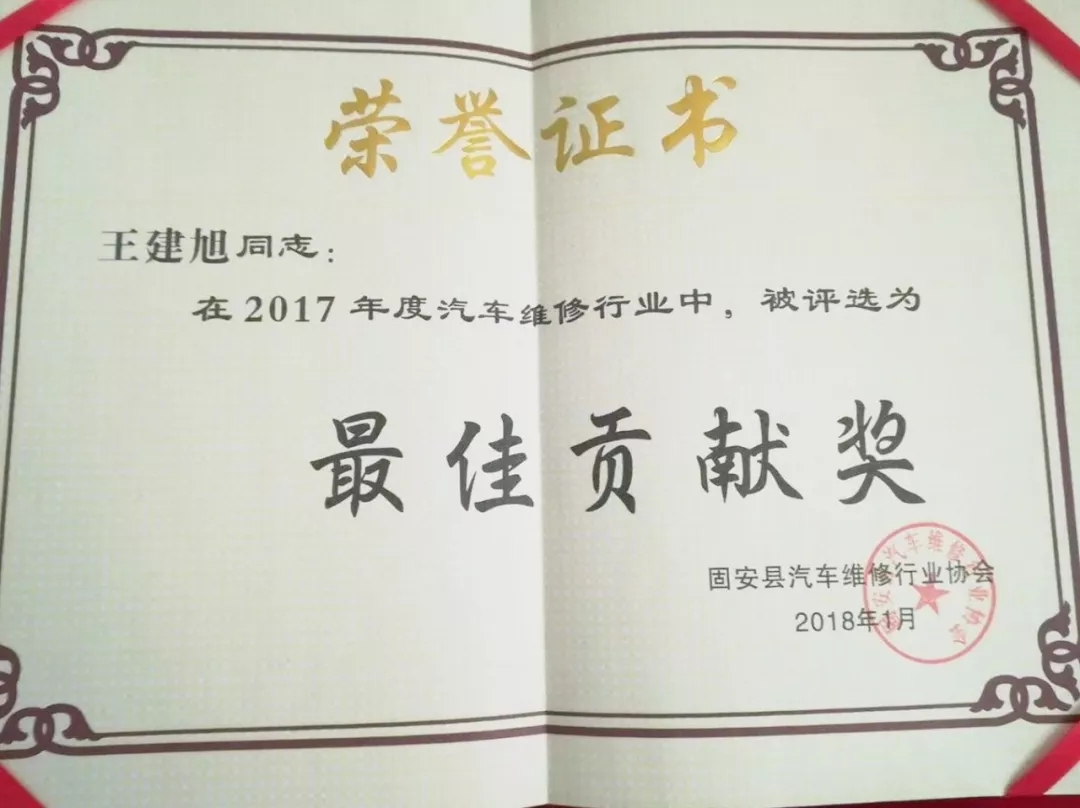 荣誉证书
王建旭同志：
在2017年度汽车维修行业中，被评选为
最佳贡献奖
固安县汽车维修行业协会
2018年1月